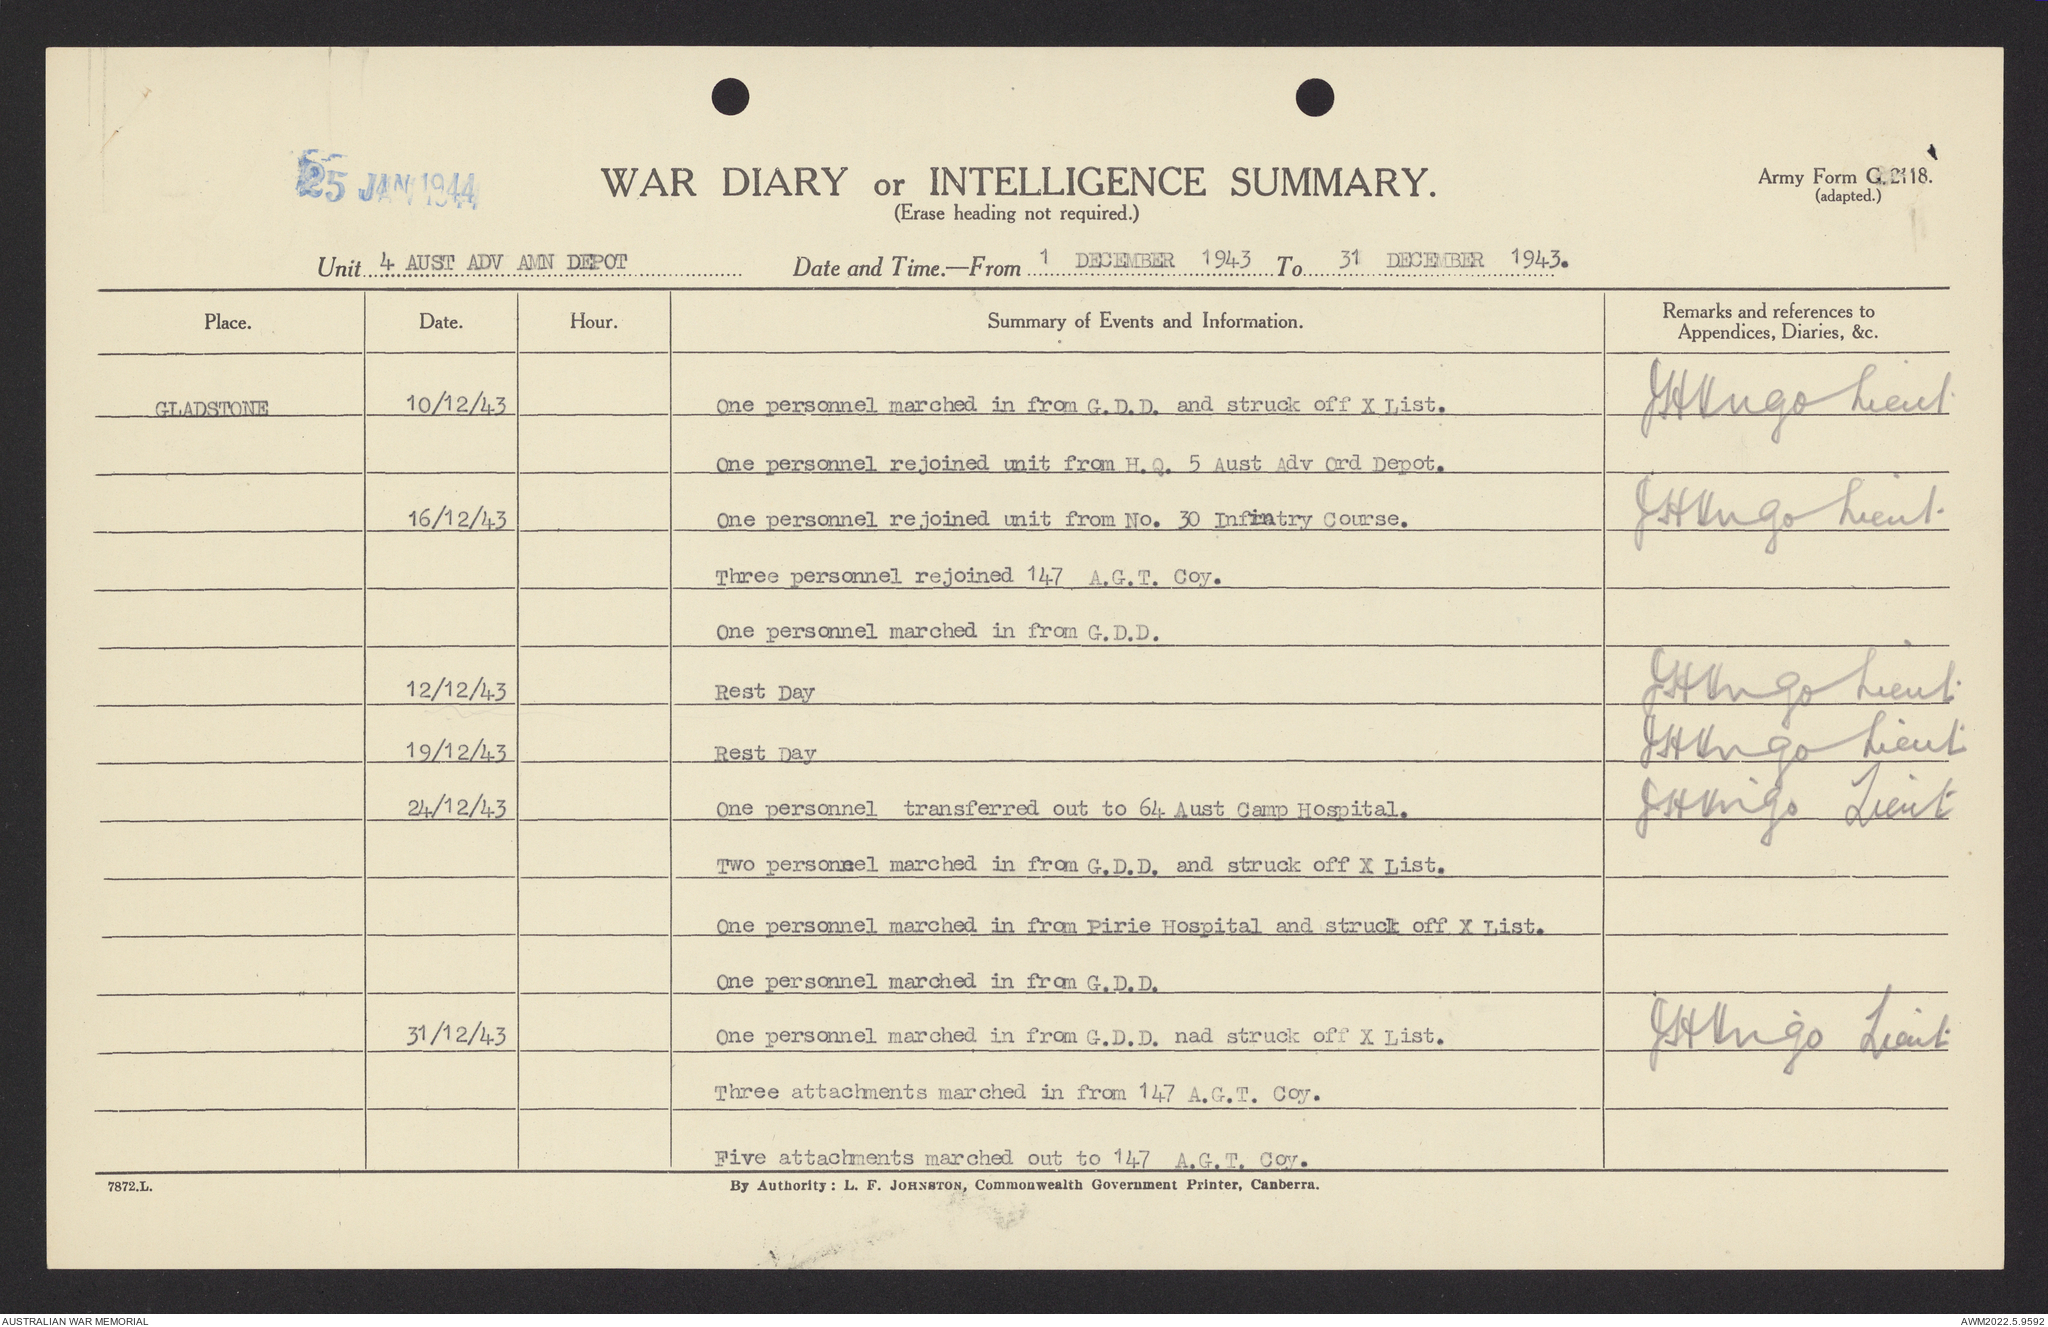 25 JAN 1944
WAR DIARY or INTELLIGENCE SUMMARY.
(Erase heading not required.)
Army Form G. 2118.
(adapted.)
Unit 4 AUST ADV AMN DEPOT Date and Time.—From 1 DECEMBER 1943 To 31 DECEMBER 1943.
Place. Date. Hour. Summary of Events and Information. Remarks and references to Appendices, Diaries, &c.
GLADSTONE 10/12/43 One personnel marched in from G.D.D. and struck off X List. Lieut
One personnel rejoined unit from H.Q. 5 Aust Adv Ord Depot.
16/12/43 One personnel rejoined unit from No. 30 Infintry Course. Lieut
Three personnel rejoined 147 A.G.T. Coy.
One personnel marched in from G.D.D.
12/12/43 Rest Day Lieut
19/12/43 Rest Day Lieut
24/12/43 One personnel transferred out to 64 Aust Camp Hospital. Lieut
Two personnel marched in from G.D.D. and struck off X List.
One personnel marched in from Pirie Hospital and struck off X List.
One personnel marched in from G.D.D.
31/12/43 One personnel marched in from G.D.D. nad struck off X List. Lieut
Three attachments marched in from 147 A.G.T. Coy.
Five attachments marched out to 147 A.G.T. Coy.
7872.L. By Authority: L. F. JOHNSTON, Commonwealth Government Printer, Canberra.
AUSTRALIAN WAR MEMORIAL AWM2022.5.9592